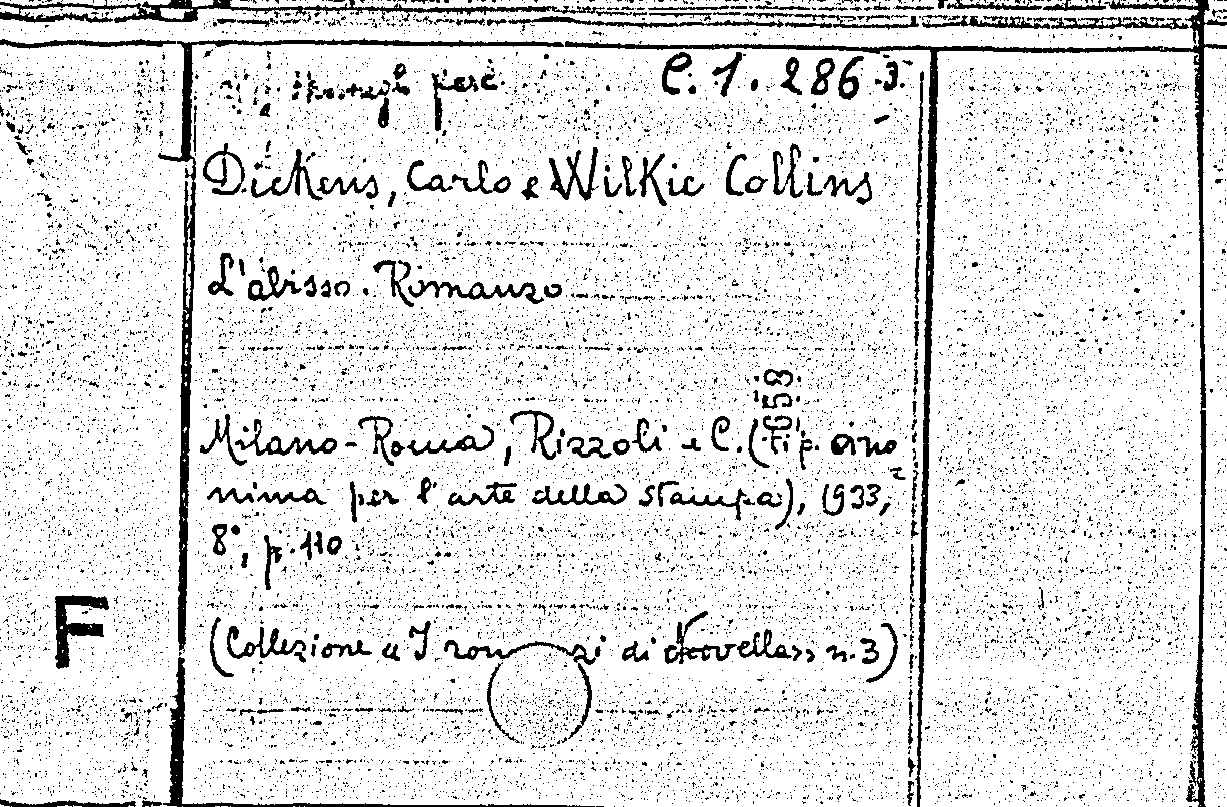 C. 1. 286.3.
Dickens, Carlo e Wilkie Collins
L'abisso. Romanzo
Milano-Roma, Rizzoli e C. (Tip. ano=
nima per l'arte della stampa), 1933,
8°, p. 110
(Collezione "I romanzi di Novella" n. 3)
F